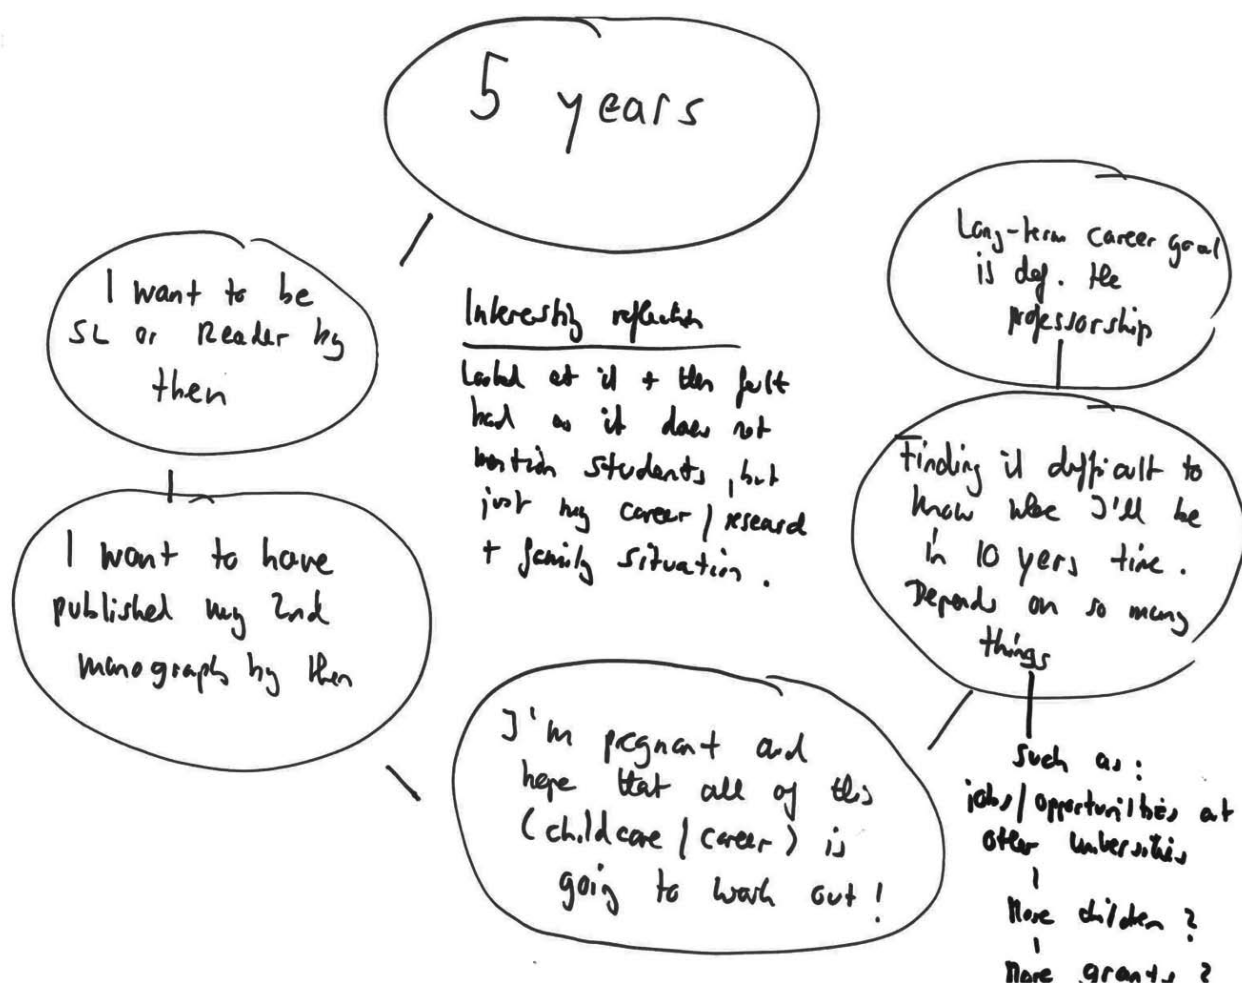 5 years
I want to be
SL or Reader by
then
I want to have
published my 2nd
monograph by then
Interesting reflection
Looked at it + then felt
bad as it does not
mention students, but
just my career / research
+ family situation.
I'm pregnant and
hope that all of this
(childcare / career) is
going to work out!
Long-term career goal
is def. the
professorship
Finding it difficult to
know where I'll be
in 10 years time.
Depends on so many
things
such as:
jobs/opportunities at
other universities
More children?
More grants?